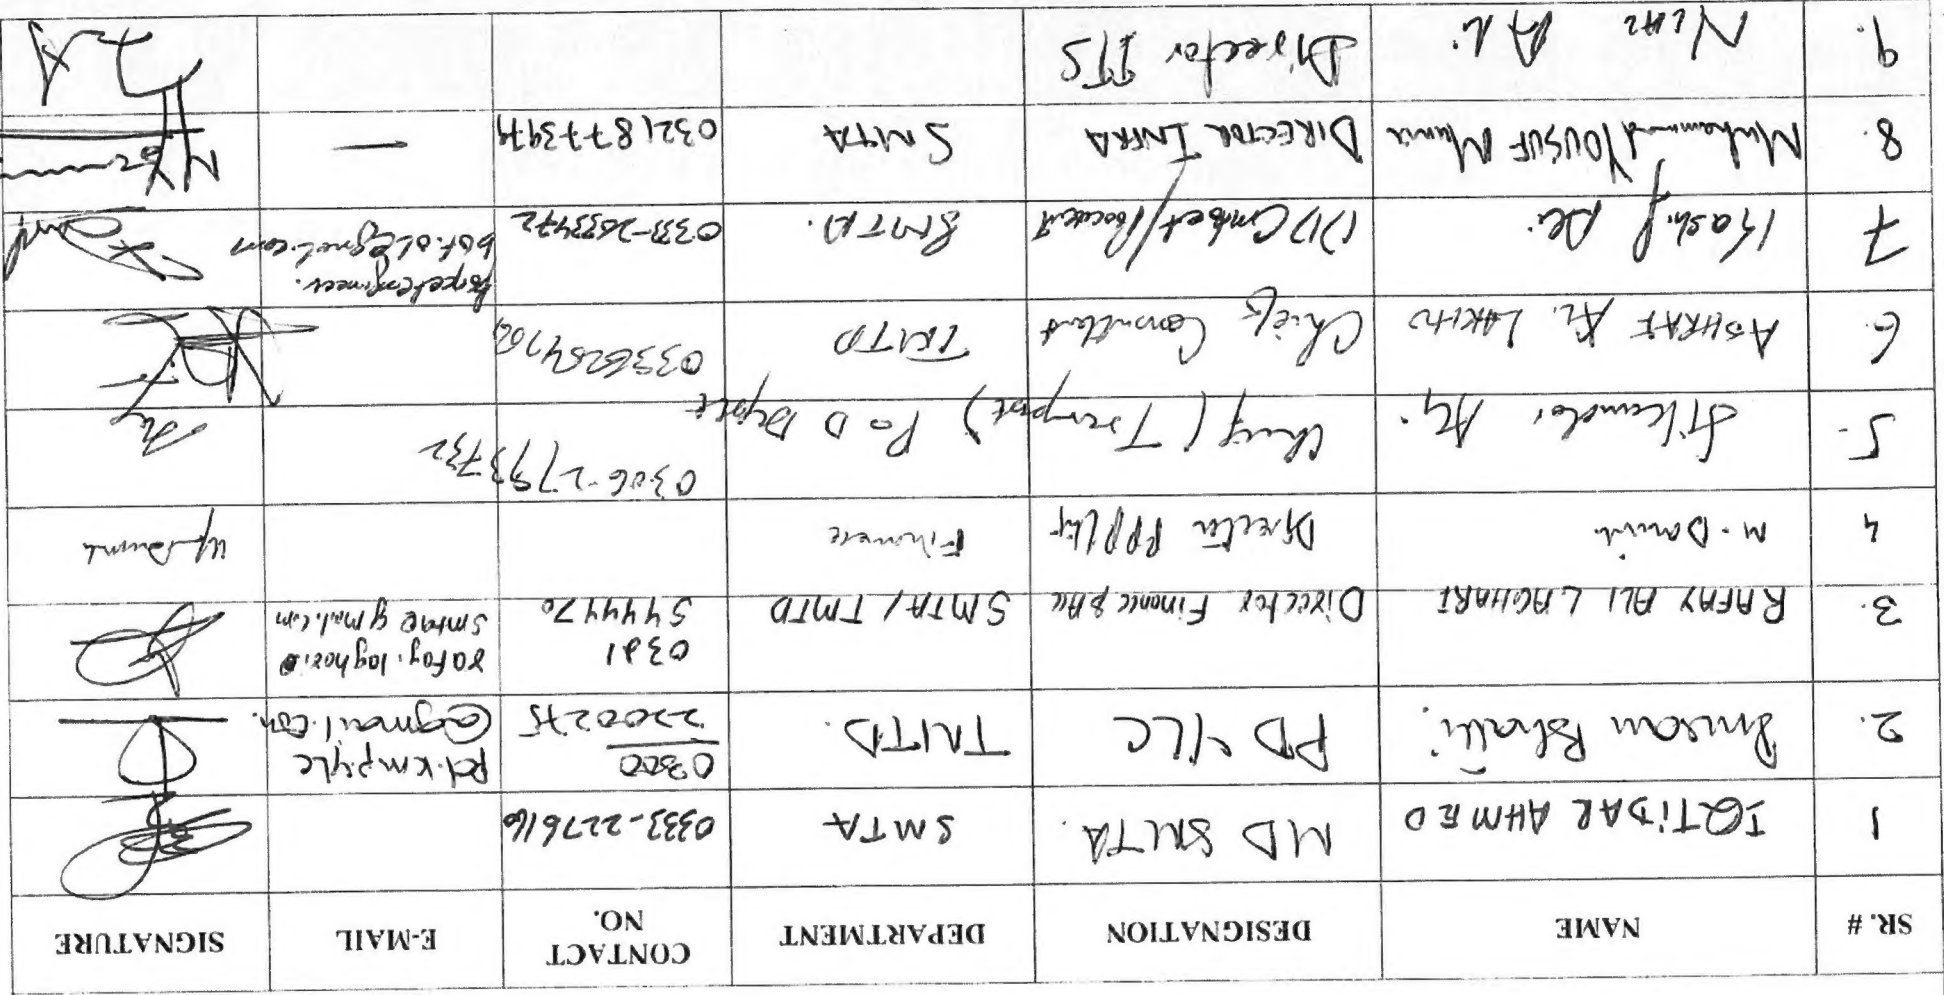 SR. # NAME DESIGNATION DEPARTMENT CONTACT NO. E-MAIL SIGNATURE
1 IQTIDAR AHMED MD SMTA. SMTA 0333-227616
2. PD YLC TMTD. 0300 2200275 pd.kmpylc @gmail.com.
3. RAFAY ALI LAGHARI Director Finance & Acc SMTA/TMTD 0321 5444470 rafay.laghari@ smta@gmail.com
4 M. Danish Director PPP Finance
5. Sikander Ali Chief (Transport) P&D Deptt 0306-2793732
6. ASHRAF Ali LAKHO Chief Consultant TMTD
7 Kashif Ali DD Contract/Procurement SMTA. 0333-2633472
8. Muhammad YOUSUF Munir DIRECTOR INFRA SMTA 03218773979 —
9. Niaz Ali Director ITS